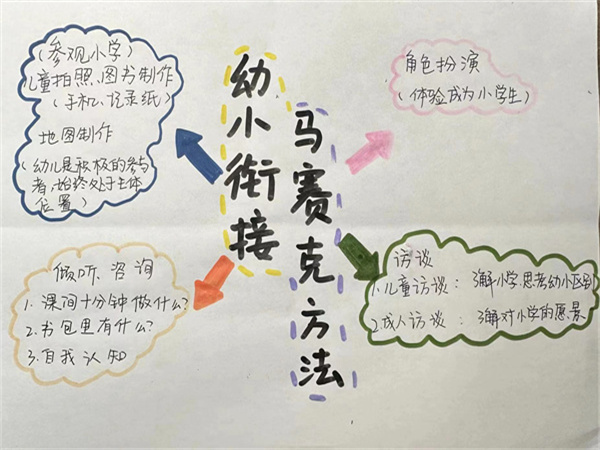 幼小衔接
马赛克方法
(参观小学)
儿童拍照、图书制作
(手机、记录纸)
地图制作
(幼儿是积极的参与
者,始终处于主体
位置)
角色扮演
(体验成为小学生)
倾听、咨询
1. 课间十分钟做什么?
2. 书包里有什么?
3. 自我认知
访谈
1.儿童访谈: 了解小学.思考幼小区别
2.成人访谈: 了解对小学的愿景